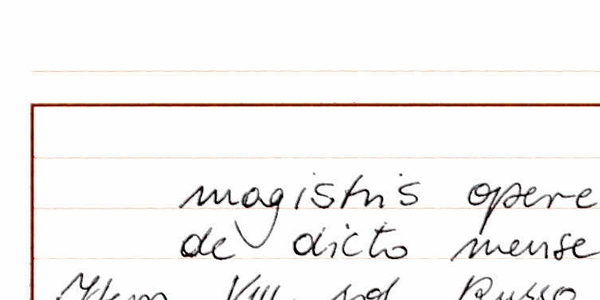 magistris opere
de dicto mense
Item VIII sol. Russo